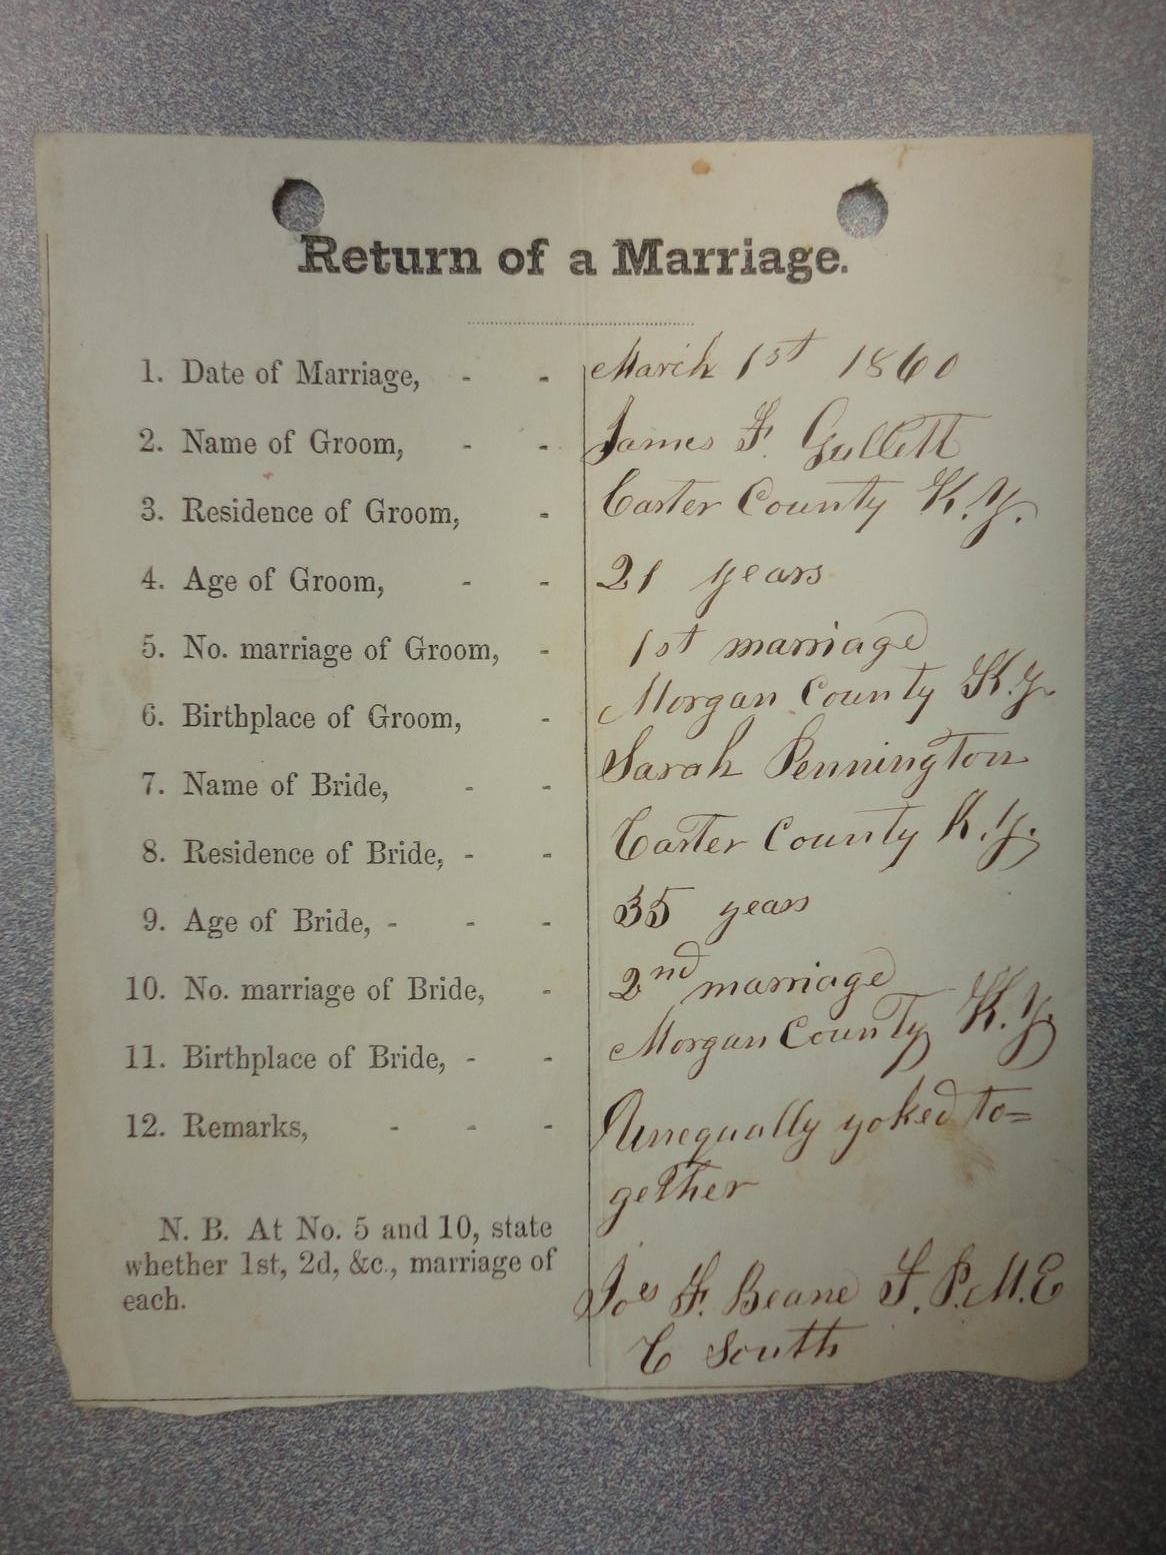 Return of a Marriage.
1. Date of Marriage, - - March 1st 1860
2. Name of Groom, - - James F. Gullett
3. Residence of Groom, - Carter County K.Y.
4. Age of Groom, - - 21 years
5. No. marriage of Groom, - 1st marriage
6. Birthplace of Groom, - Morgan County K.Y.
7. Name of Bride, - - Sarah Pennington
8. Residence of Bride, - - Carter County K.Y.
9. Age of Bride, - - - 35 years
10. No. marriage of Bride, - 2nd marriage
11. Birthplace of Bride, - - Morgan County K.Y.
12. Remarks, - - - Unequally yoked to=
gether
N. B. At No. 5 and 10, state
whether 1st, 2d, &c., marriage of
each.
Jos F. Beane F. P. M. E
C South